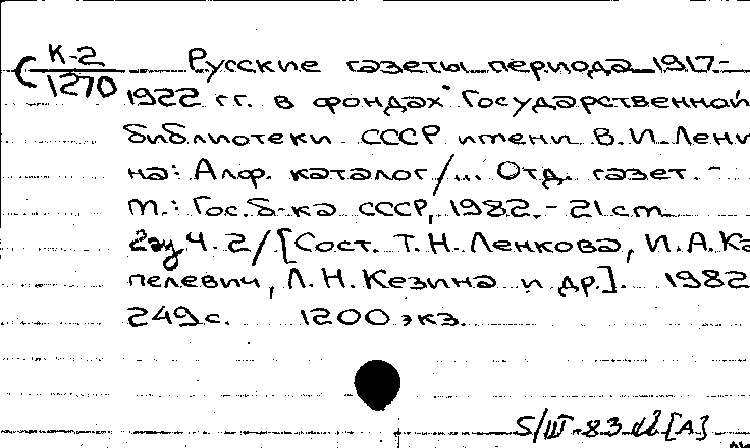 К-2
1270
Русские газеты периода 1917-
1922 гг. в фондах Государственной
библиотеки СССР имени В.И. Лени
на: Алф. каталог/... Отд. газет. -
М.: Гос. б-ка СССР, 1982. - 21 cm
Ч. 2/[Сост. Т.Н. Ленкова, И.А. Ка
пелевич, Л.Н. Кезина и др.]. 1982
249 с. 1200 экз.
5/III-83 [А]